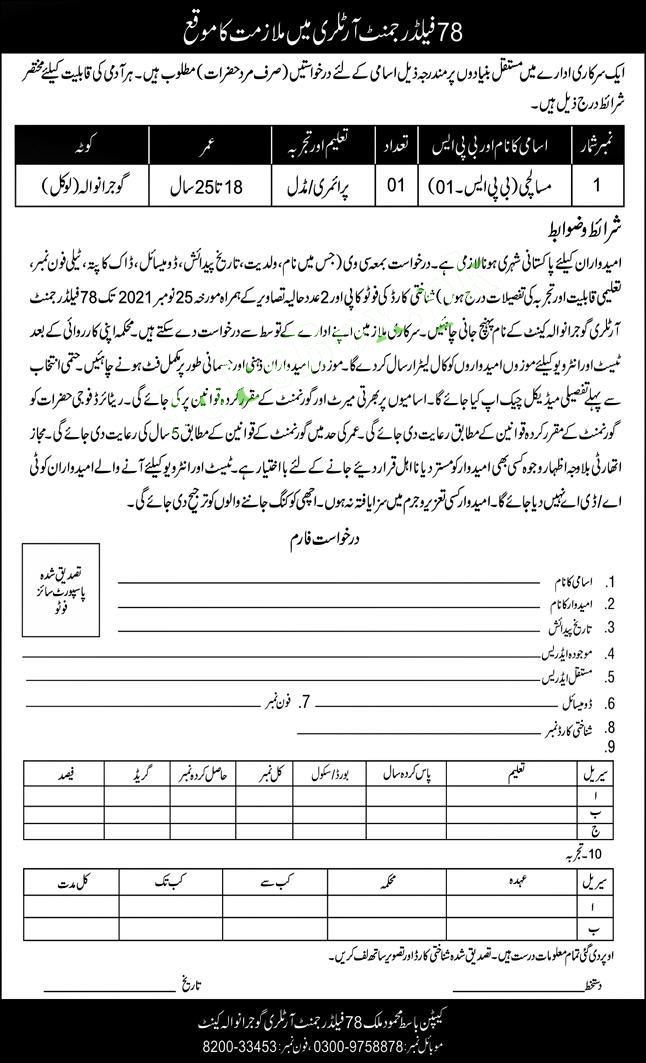 78 فیلڈ رجمنٹ آرٹلری میں ملازمت کا موقع
ایک سرکاری ادارے میں مستقل بنیادوں پر مندرجہ ذیل اسامی کے لئے درخواستیں (صرف مرد حضرات) مطلوب ہیں۔ ہر آدمی کی قابلیت کیلئے مختصر
شرائط درج ذیل ہیں۔
نمبر شمار اسامی کا نام اور بی پی ایس تعداد تعلیم اور تجربہ عمر کوٹہ
1 مسالچی (بی پی ایس۔01) 01 پرائمری/مڈل 18 تا 25 سال گوجرانوالہ (لوکل)
شرائط و ضوابط
امیدواران کیلئے پاکستانی شہری ہونا لازمی ہے۔ درخواست بمعہ سی وی (جس میں نام، ولدیت، تاریخ پیدائش، ڈومیسائل، ڈاک کا پتہ، ٹیلی فون نمبر،
تعلیمی قابلیت اور تجربہ کی تفصیلات درج ہوں) شناختی کارڈ کی فوٹو کاپی اور 2 عدد حالیہ تصاویر کے ہمراہ مورخہ 25 نومبر 2021 تک 78 فیلڈ رجمنٹ
آرٹلری گوجرانوالہ کینٹ کے نام پہنچ جانی چاہئیں۔ سرکاری ملازمین اپنے ادارے کے توسط سے درخواست دے سکتے ہیں۔ محکمہ اپنی کارروائی کے بعد
ٹیسٹ اور انٹرویو کیلئے موزوں امیدواروں کو کال لیٹر ارسال کر دے گا۔ موزوں امیدواران ذہنی اور جسمانی طور پر مکمل فٹ ہونے چاہئیں۔ حتمی انتخاب
سے پہلے تفصیلی میڈیکل چیک اپ کیا جائے گا۔ اسامیوں پر بھرتی میرٹ اور گورنمنٹ کے مقرر کردہ قوانین پر کی جائے گی۔ ریٹائرڈ فوجی حضرات کو
گورنمنٹ کے مقرر کردہ قوانین کے مطابق رعایت دی جائے گی۔ عمر کی حد میں گورنمنٹ کے قوانین کے مطابق 5 سال کی رعایت دی جائے گی۔ مجاز
اتھارٹی بلاوجہ اظہار وجوہ کسی بھی امیدوار کو مسترد یا نااہل قرار دیئے جانے کے لئے بااختیار ہے۔ ٹیسٹ اور انٹرویو کیلئے آنے والے امیدواران کو ٹی
اے/ڈی اے نہیں دیا جائے گا۔ امیدوار کسی تعزیر و جرم میں سزا یافتہ نہ ہوں۔ اچھی کوکنگ جاننے والوں کو ترجیح دی جائے گی۔
درخواست فارم
تصدیق شدہ
پاسپورٹ سائز
فوٹو
1. اسامی کا نام
2. امیدوار کا نام
3. تاریخ پیدائش
4. موجودہ ایڈریس
5. مستقل ایڈریس
6. ڈومیسائل 7. فون نمبر
8. شناختی کارڈ نمبر
9.
سیریل تعلیم پاس کردہ سال بورڈ/سکول کل نمبر حاصل کردہ نمبر گریڈ فیصد
ا
ب
ج
10۔ تجربہ
سیریل عہدہ محکمہ کب سے کب تک کل مدت
ا
ب
اوپر دی گئی تمام معلومات درست ہیں۔ تصدیق شدہ شناختی کارڈ اور تصویر ساتھ لف کریں۔
دستخط تاریخ
کیپٹن باسط محمود ملک 78 فیلڈ رجمنٹ آرٹلری گوجرانوالہ کینٹ
موبائل نمبر: 0300-9758878، فون نمبر: 33453-8200